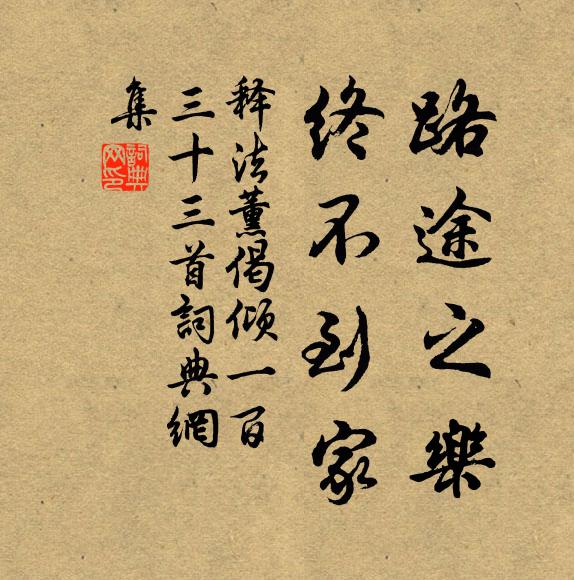 路途之樂
終不到家
释法薰偈倾一百
三十三首詞典網
集
詞典
网印